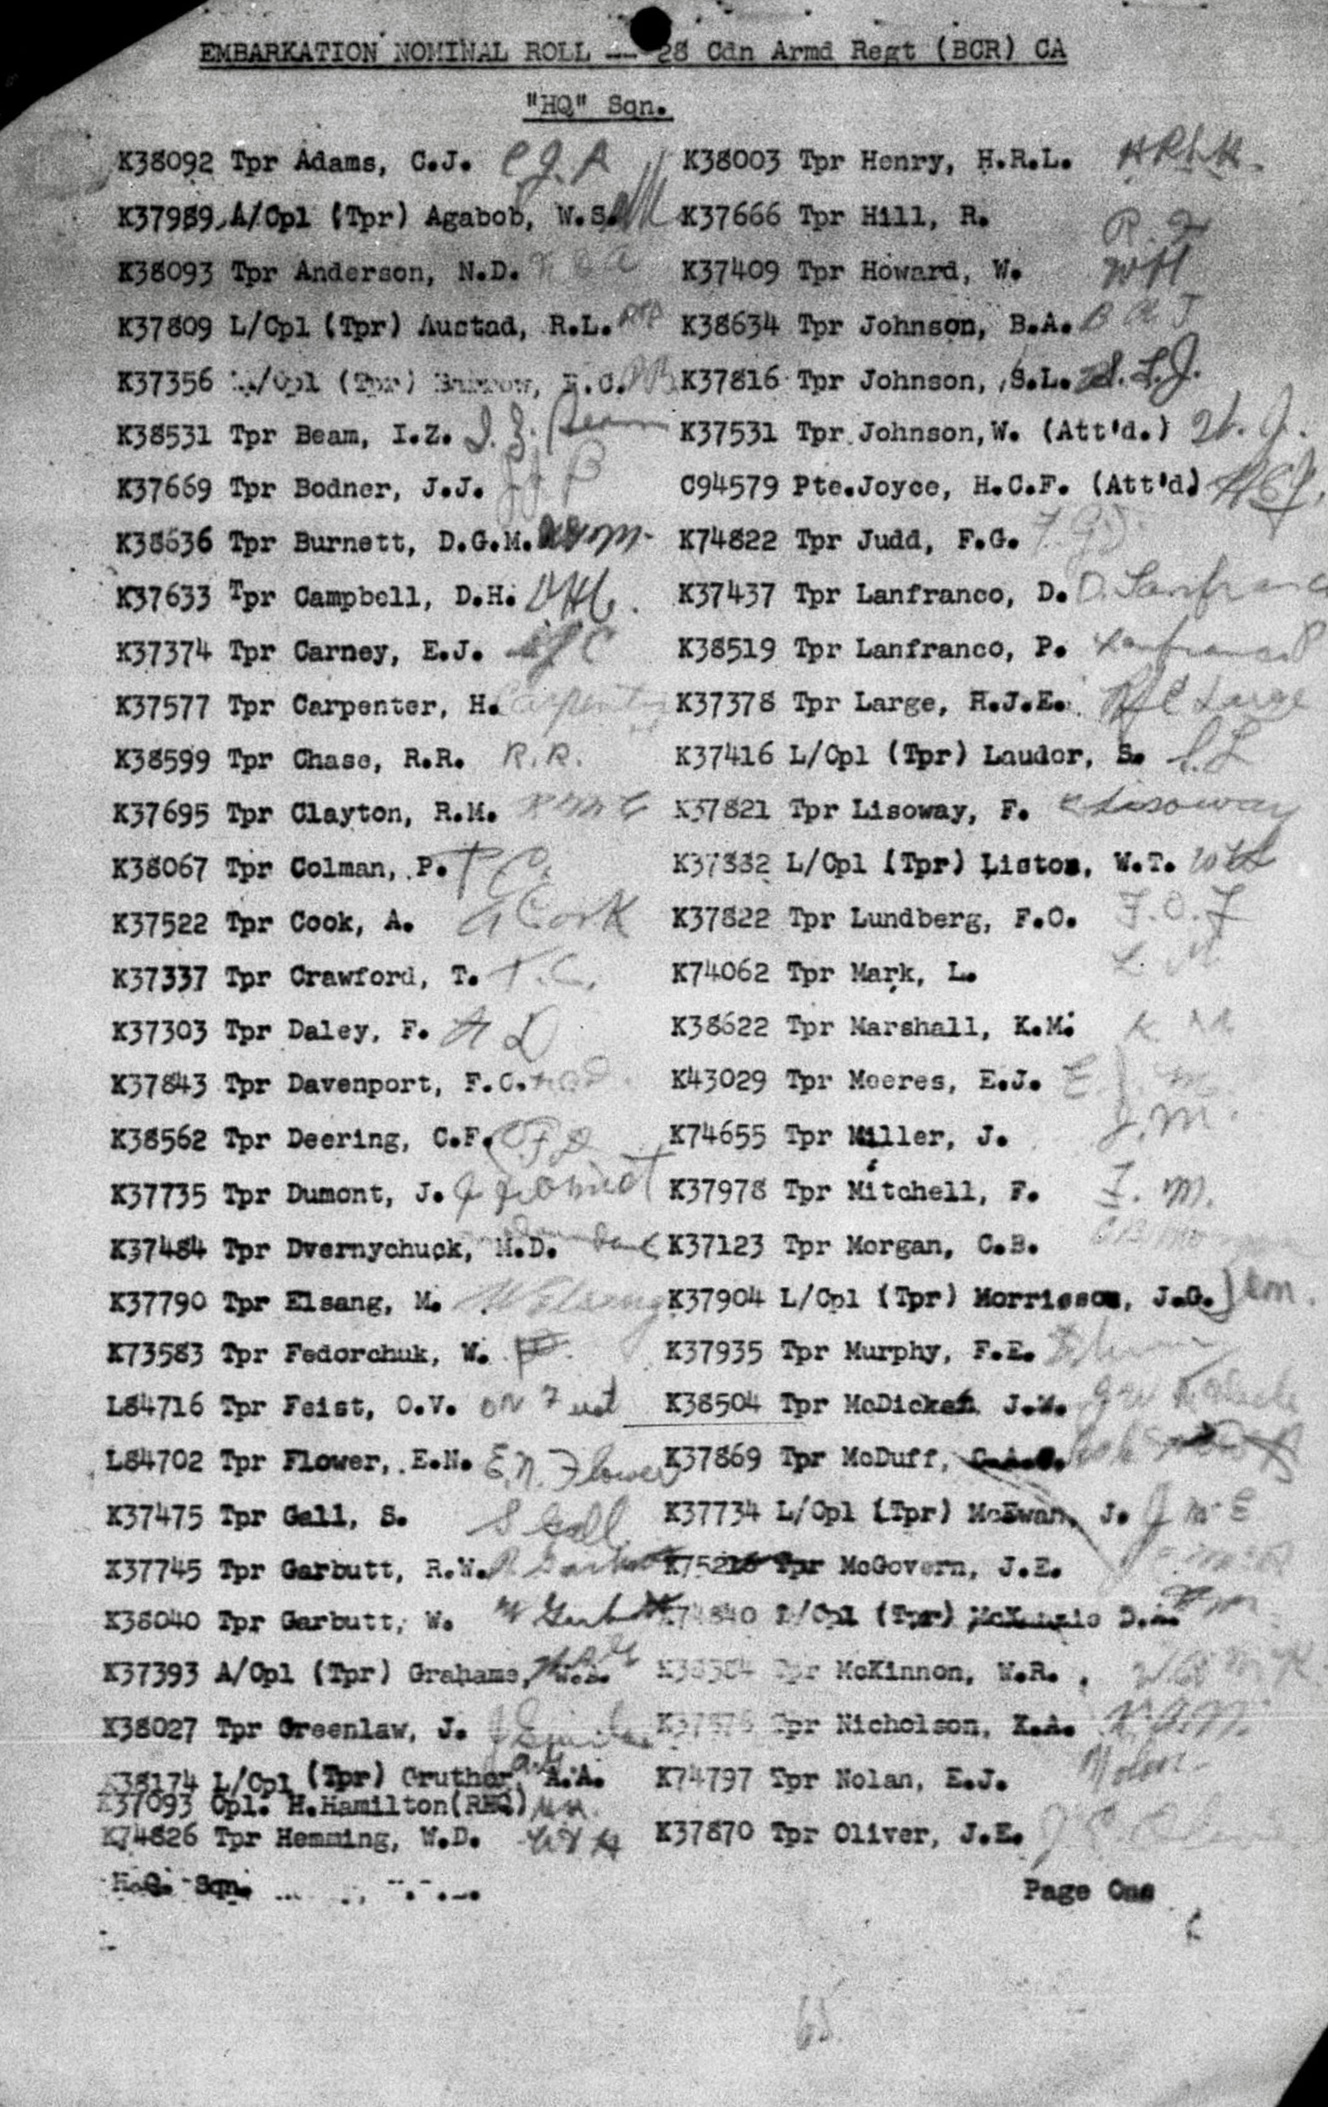 EMBARKATION NOMINAL ROLL -- 28 Cdn Armd Regt (BCR) CA
"HQ" Sqn.
K38092 Tpr Adams, C.J. C J. A
K37989 A/Cpl (Tpr) Agabob, W.S.
K38093 Tpr Anderson, N.D. N D A
K37809 L/Cpl (Tpr) Austad, R.L.
K37356 /Cpl (Tpr)
K38531 Tpr Beam, I.Z. I. Z. Beam
K37669 Tpr Bodner, J.J. J J B
K38636 Tpr Burnett, D.G.M.
K37633 Tpr Campbell, D.H. DHC.
K37374 Tpr Carney, E.J. EJC
K37577 Tpr Carpenter, H. Carpenter
K38599 Tpr Chase, R.R. R.R.
K37695 Tpr Clayton, R.M. RMC
K38067 Tpr Colman, P. P C.
K37522 Tpr Cook, A. A Cook
K37337 Tpr Crawford, T. T.C.
K37303 Tpr Daley, F. D
K37843 Tpr Davenport, F.C.
K38562 Tpr Deering, C.F. C F D
K37735 Tpr Dumont, J. J Dumont
K37484 Tpr Dvernychuck, M.D.
K37790 Tpr Elsang, M. M Elsang
K73583 Tpr Fedorchuk, W.
L84716 Tpr Feist, O.V. OV Feist
L84702 Tpr Flower, E.N. E.N. Flower
K37475 Tpr Gall, S. S Gall
K37745 Tpr Garbutt, R.W. R Garbutt
K38040 Tpr Garbutt, W. W Garbutt
K37393 A/Cpl (Tpr) Grahame,
K38027 Tpr Greenlaw, J.
K38174 L/Cpl (Tpr) Gruthor, A.A.
K37093 Cpl. H.Hamilton(RHQ) HH.
K74826 Tpr Hemming, W.D.
H.Q. Sqn.
K38003 Tpr Henry, H.R.L. HRLH.
K37666 Tpr Hill, R. R.
K37409 Tpr Howard, W. WH
K38634 Tpr Johnson, B.A. B A J
K37816 Tpr Johnson, S.L. S.L.J.
K37531 Tpr Johnson,W. (Att'd.) W. J.
C94579 Pte.Joyce, H.C.F. (Att'd)
K74822 Tpr Judd, F.G. F.G J.
K37437 Tpr Lanfranco, D. D. Lanfranco
K38519 Tpr Lanfranco, P. Lanfranco P
K37378 Tpr Large, H.J.E. Large
K37416 L/Cpl (Tpr) Laudor, S. S.L
K37821 Tpr Lisoway, F. Lisoway
K37332 L/Cpl (Tpr) Liston, W.T. WTL
K37822 Tpr Lundberg, F.O. F.O.
K74062 Tpr Mark, L. L. M
K38622 Tpr Marshall, K.M. K M
K43029 Tpr Meeres, E.J. E J M
K74655 Tpr Miller, J. J.M.
K37978 Tpr Mitchell, F. F. M.
K37123 Tpr Morgan, C.B. CB Morgan
K37904 L/Cpl (Tpr) Morrison, J.G. JGM.
K37935 Tpr Murphy, F.E.
K38504 Tpr McDicken J.W.
K37869 Tpr McDuff,
K37734 L/Cpl (Tpr) McEwan, J. J McE
Tpr McGovern, J.E.
K74840 L/Cpl (Tpr) McKenzie D.A.
K38584 Tpr McKinnon, W.R.
Tpr Nicholson, K.A. K.A.N.
K74797 Tpr Nolan, E.J. Nolan
K37870 Tpr Oliver, J.E.
Page One
65